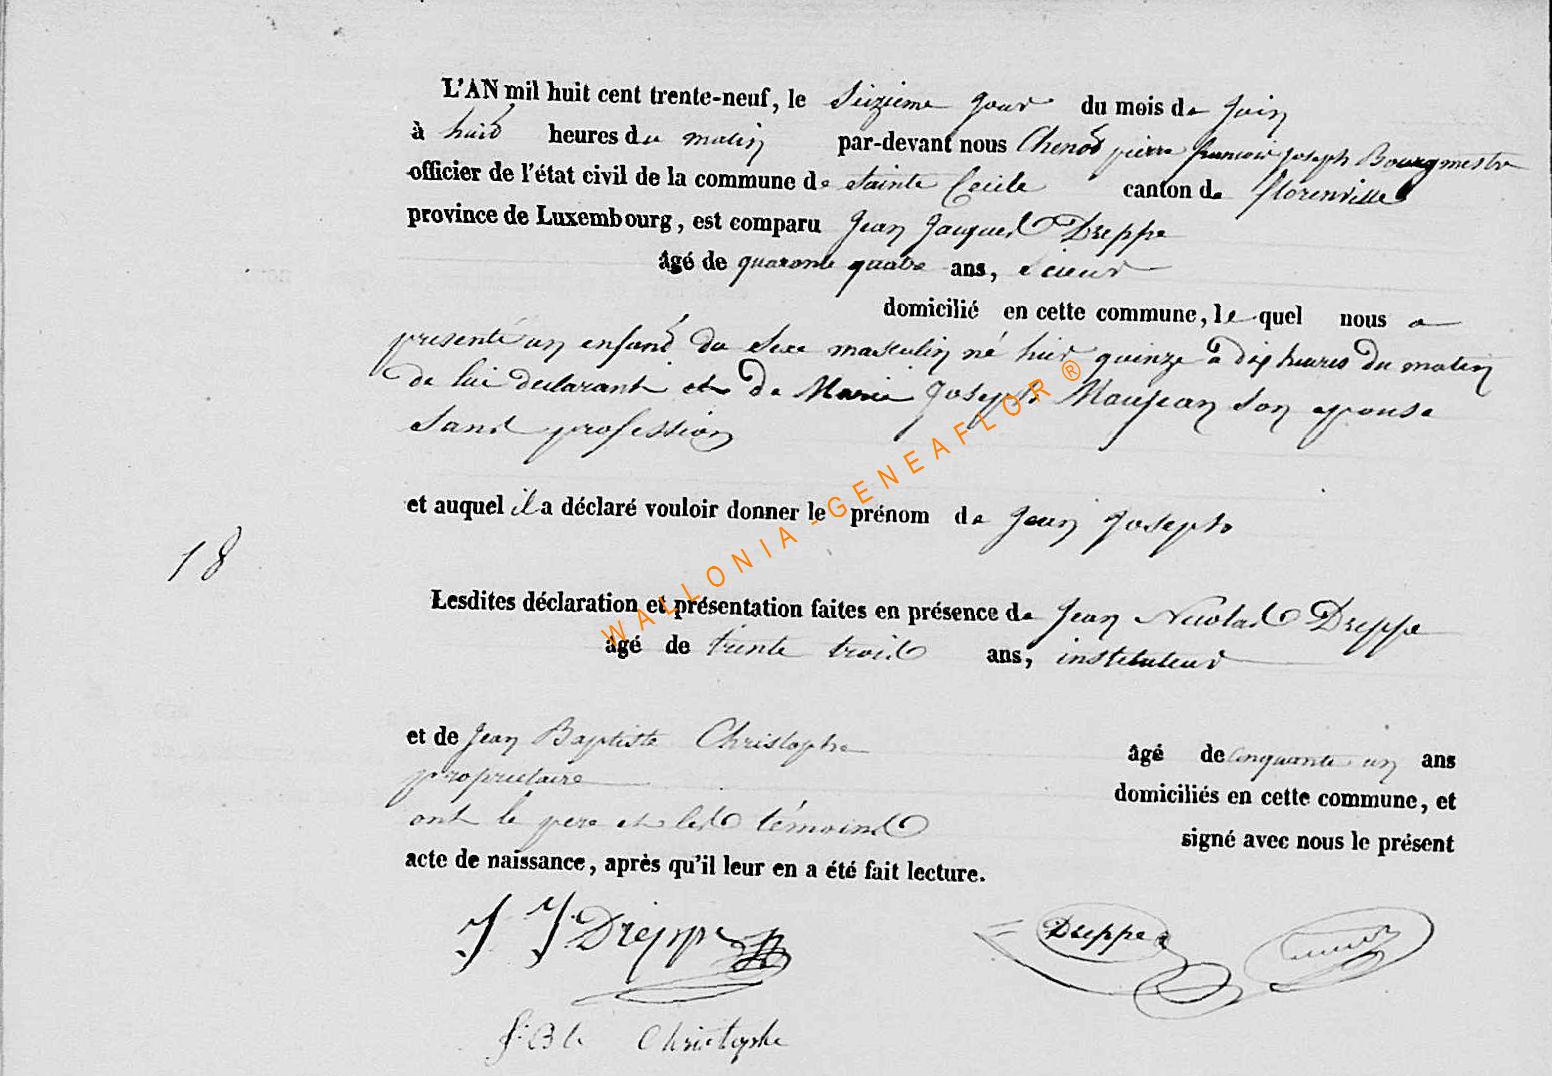 L'AN mil huit cent trente-neuf, le Seizieme jour du mois de juin
à huit heures du matin par-devant nous Chenot pierre francois joseph Bourgmestre
officier de l'état civil de la commune de Sainte Cecile canton de florenville
province de Luxembourg, est comparu Jean Jacques Dreppe
âgé de quarante quatre ans, Scieur
domicilié en cette commune, le quel nous a
presenté un enfant du Sexe masculin né hier quinze à dix heures du matin
de lui declarant et de Marie Joseph Maujean son epouse
sans profession
et auquel il a déclaré vouloir donner le prénom de Jean Joseph
18
Lesdites déclaration et présentation faites en présence de Jean Nicolas Dreppe
âgé de trente trois ans, instituteur
et de Jean Baptiste Christophe âgé de cinquante un ans
propriétaire domiciliés en cette commune, et
ont le pere et les témoins signé avec nous le présent
acte de naissance, après qu'il leur en a été fait lecture.
J J Dreppe Dreppe
J. B te Christophe
WALLONIA-GENEAFLOR ®